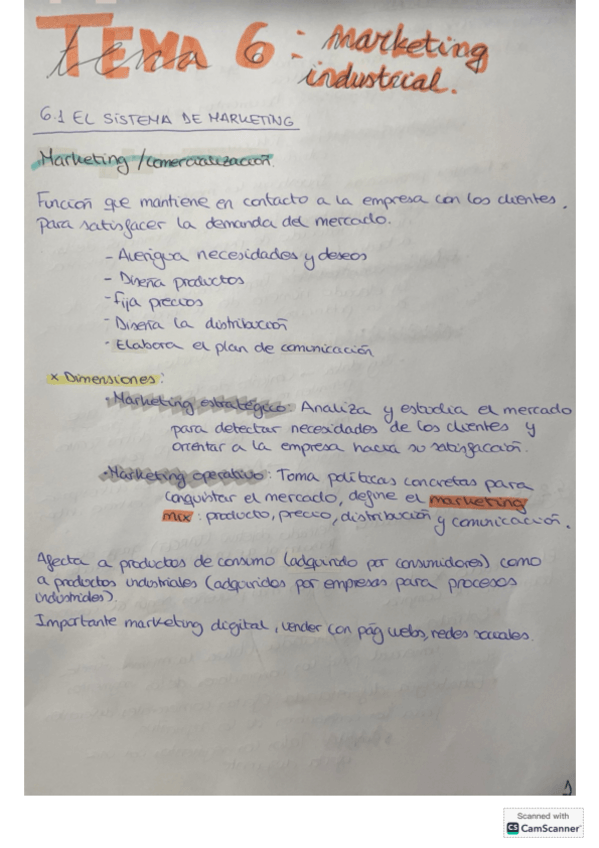 TEMA 6: Marketing
industrial.
6.1 EL SISTEMA DE MARKETING
Marketing / comercialización.
Función que mantiene en contacto a la empresa con los clientes,
para satisfacer la demanda del mercado.
- Averigua necesidades y deseos
- Diseña productos
- Fija precios
- Diseña la distribución
- Elabora el plan de comunicación
x Dimensiones:
· Marketing estratégico: Analiza y estudia el mercado
para detectar necesidades de los clientes y
orientar a la empresa hacia su satisfacción.
· Marketing operativo: Toma políticas concretas para
conquistar el mercado, define el marketing
mix: producto, precio, distribución y comunicación.
Afecta a productos de consumo (adquirido por consumidores) como
a productos industriales (adquiridos por empresas para procesos
industriales).
Importante marketing digital, vender con pág webs, redes sociales.
1
Scanned with
CS CamScanner